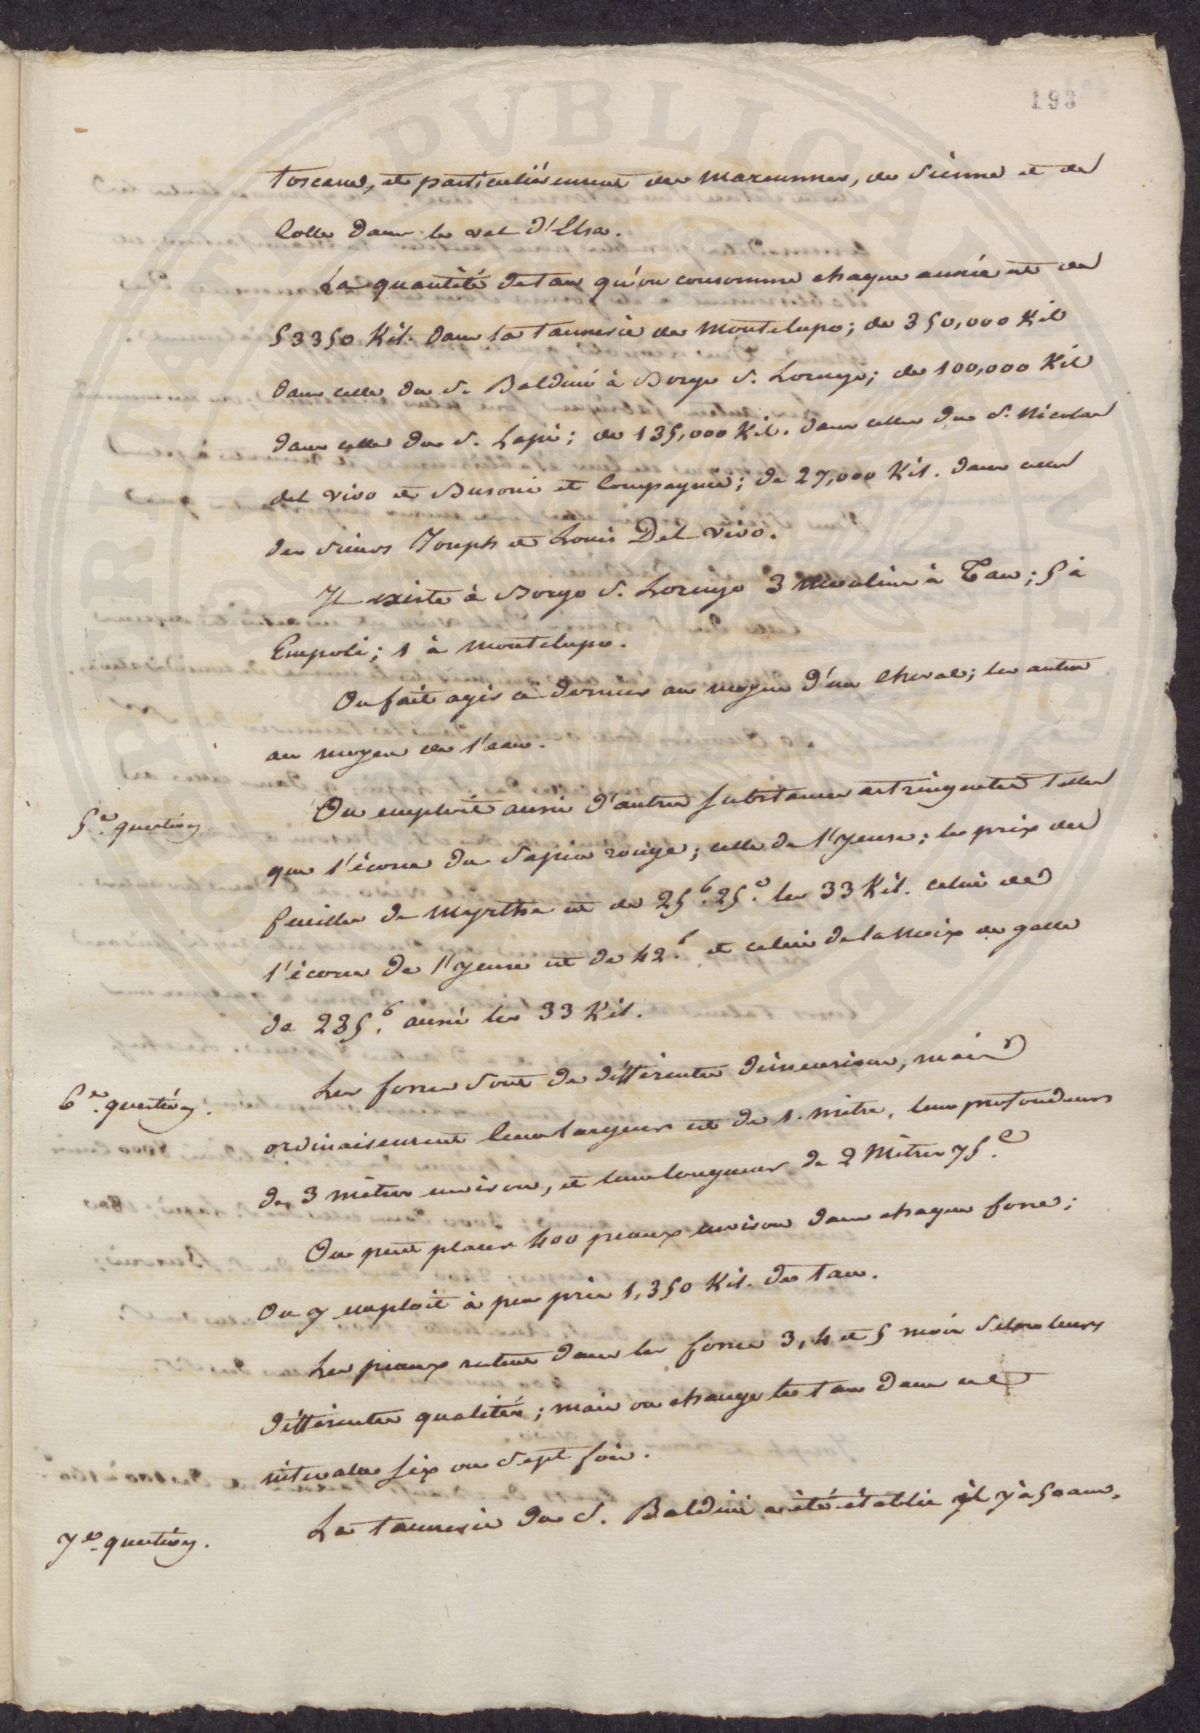 193
toscane, et particulièrement des maremmes, de Sienne et de
Colle dans le val d'Elsa.
La quantité de tan qu'on consomme chaque année est de
53350 Kil. dans la tannerie de Montelupo; de 350,000 Kil
dans celle du S. Baldini à Borgo S. Lorenzo; de 100,000 Kil
dans celle du S. Lapi; de 135,000 Kil. dans celle du S. Nicolas
del vivo et Busoni et Compagnie; de 27,000 Kil. dans celle
des Sieurs Joseph et Louis Del vivo.
Il existe à Borgo S. Lorenzo 3 moulins à Tan; 5 à
Empoli; 1 à Montelupo.
On fait agir ce dernier au moyen d'un cheval; les autres
au moyen de l'eau.
5e. question
On emploit aussi d'autres substances astringentes telles
que l'écorce du Sapin rouge; celle de l'yeuse; le prix des
feuilles de Myrthe est de 25f. 25c. les 33 Kil. celui de
l'écorce de l'yeuse est de 42.f et celui de la noix de galle
de 235.f aussi les 33 Kil.
6e. question.
Les fosses sont de différentes dimensions, mais
ordinairement leur largeur est de 1. mètre, leur profondeur
de 3 mètres environ, et leur longueur de 2 Mètres 75.c
On peut placer 400 peaux environ dans chaque fosse;
On y emploit à peu près 1,350 Kil. de tan.
Les peaux restent dans les fosses 3, 4 et 5 mois selon leurs
différentes qualités; mais on change le tan dans cet
intervalle six ou sept fois.
7e. question.
La tannerie du S. Baldini a été établie il y a 50 ans.